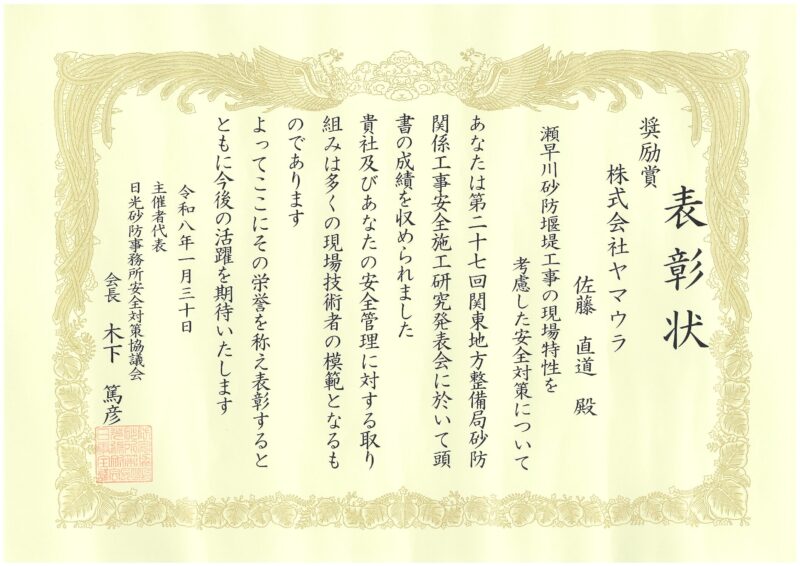 表彰状
奨励賞
株式会社ヤマウラ
佐藤 直道 殿
瀬早川砂防堰堤工事の現場特性を
考慮した安全対策について
あなたは第二十七回関東地方整備局砂防
関係工事安全施工研究発表会に於いて頭
書の成績を収められました
貴社及びあなたの安全管理に対する取り
組みは多くの現場技術者の模範となるも
のであります
よってここにその栄誉を称え表彰すると
ともに今後の活躍を期待いたします
令和八年一月三十日
主催者代表
日光砂防事務所安全対策協議会
会長 木下 篤彦